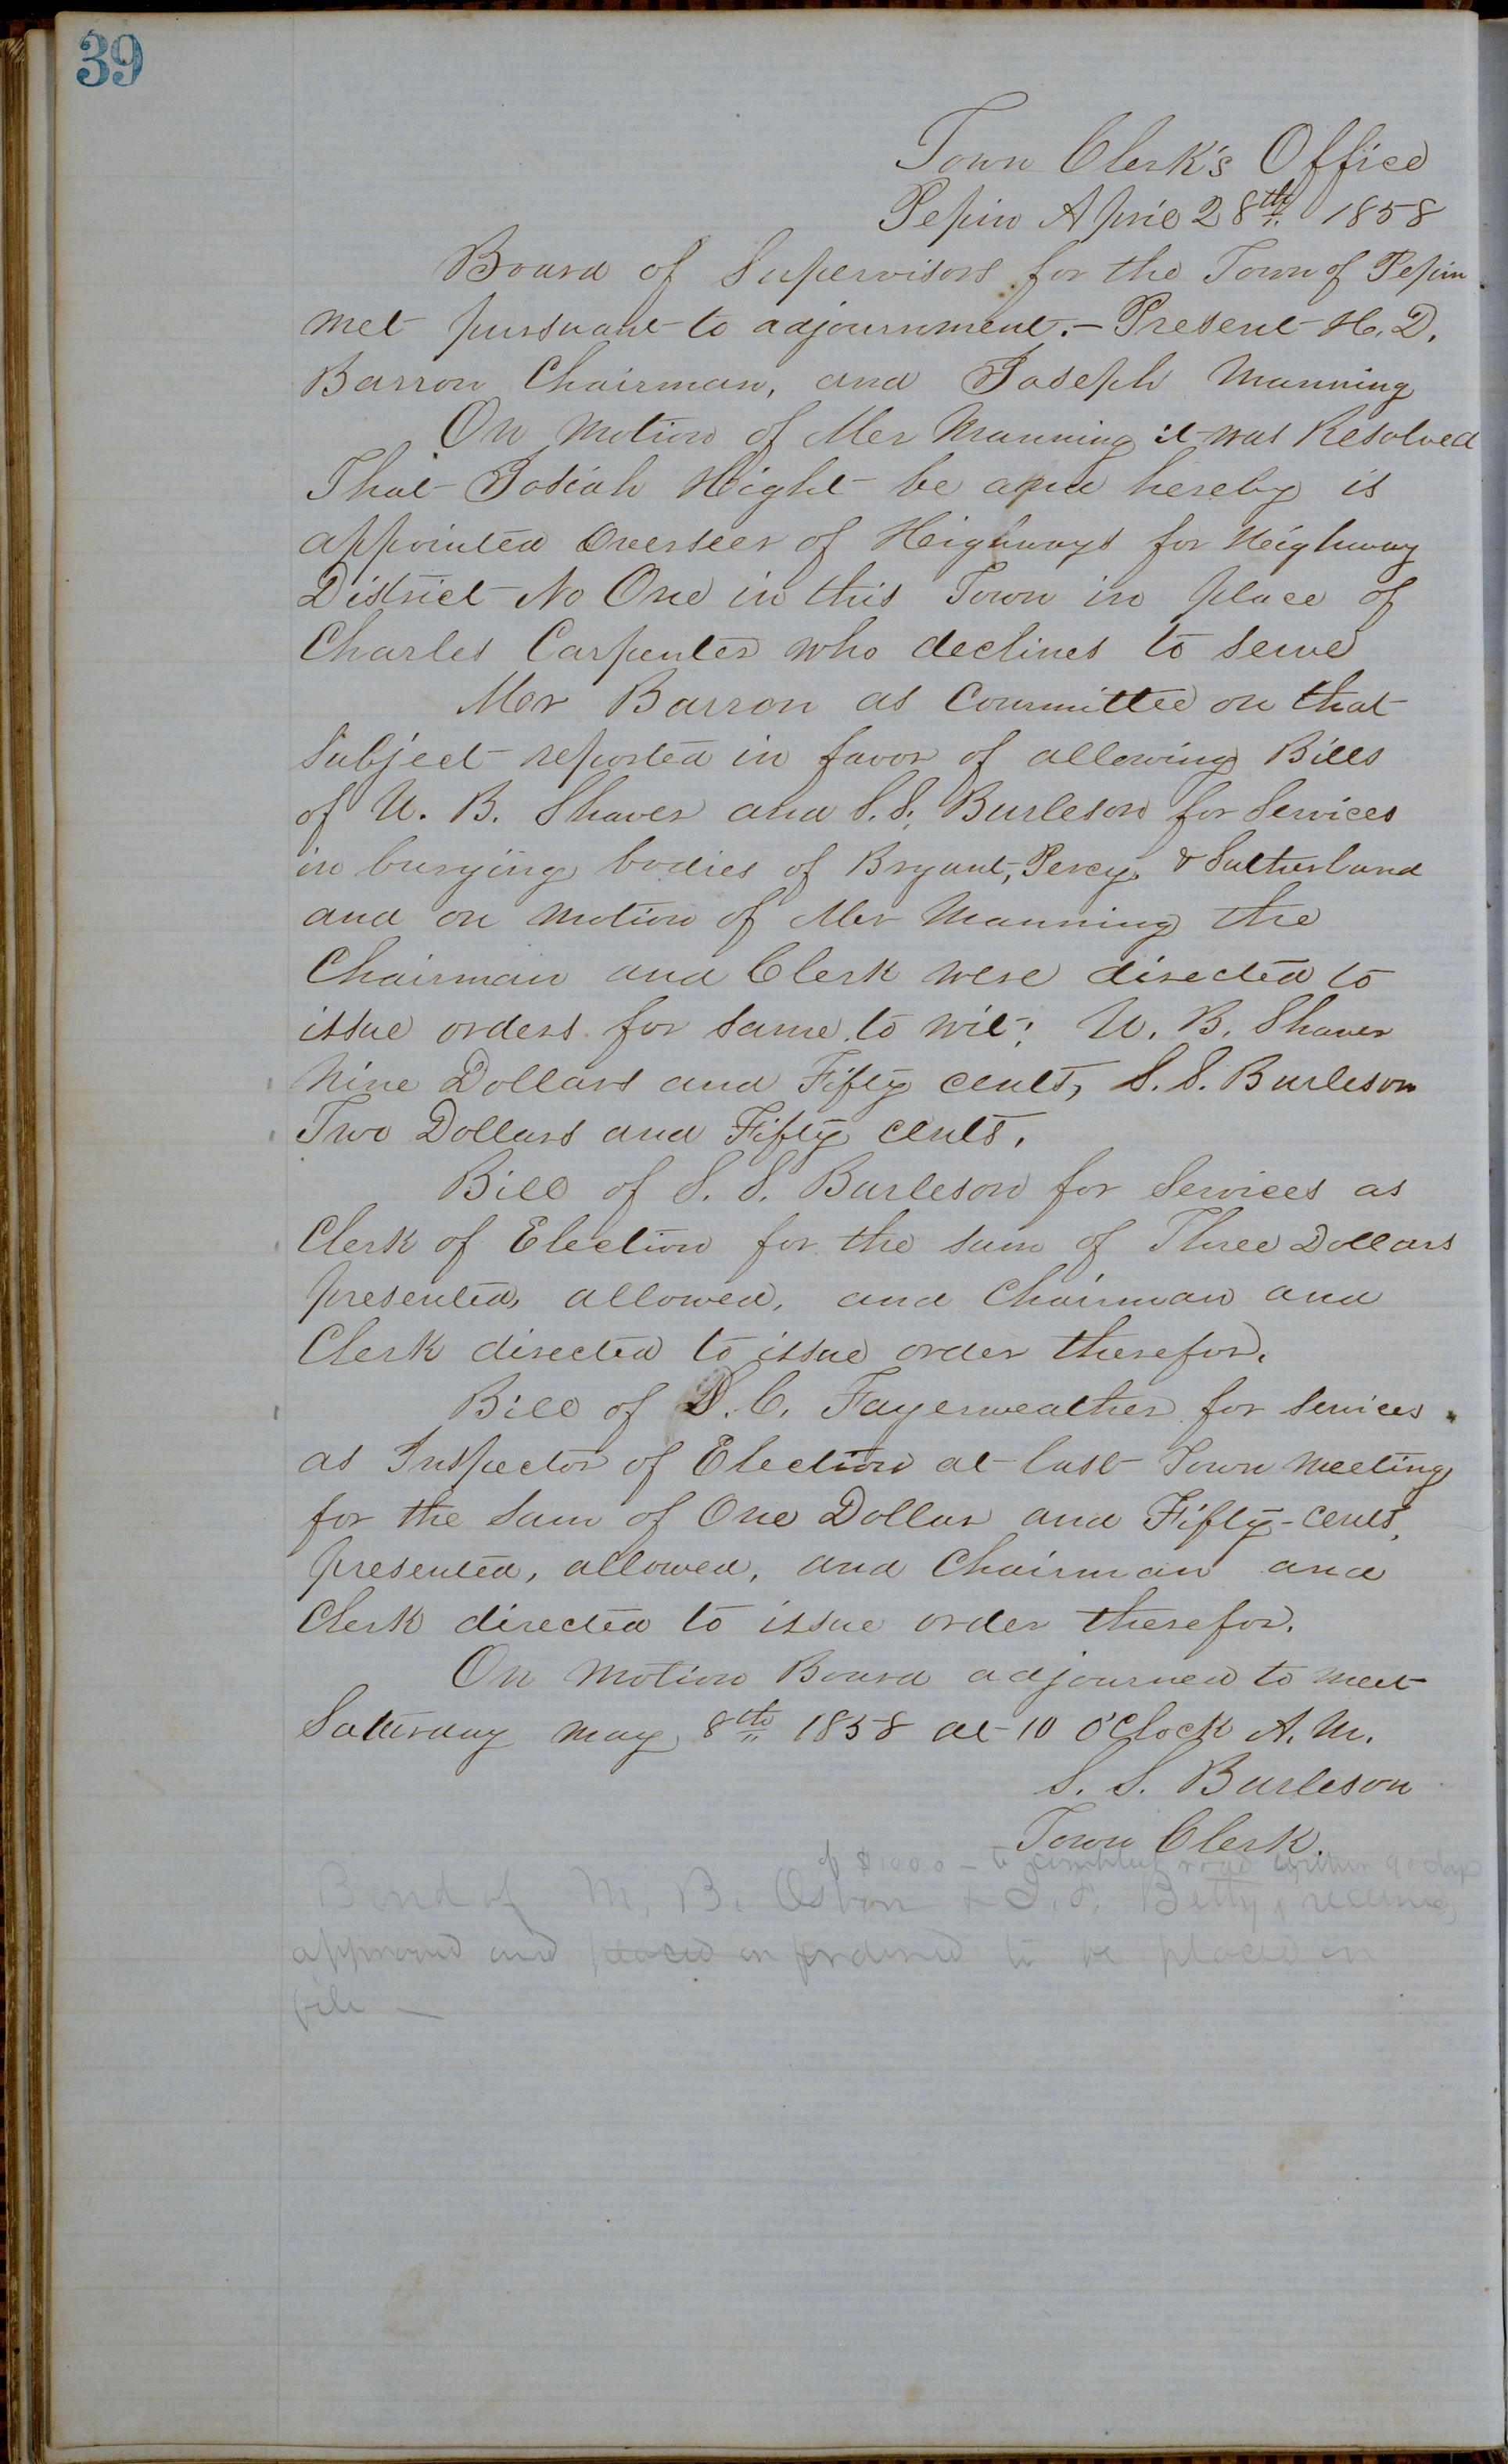 39
Town Clerk's Office
Pepin April 28th 1858
Board of Supervisors for the Town of Pepin
met pursuant to adjournment. - Present H. D.
Barron Chairman, and Joseph Manning
On motion of Mr Manning it was Resolved
That Josiah Hight be and hereby is
appointed Overseer of Highways for Highway
District No One in this Town in place of
Charles Carpenter who declines to serve
Mr Barron as Committee on that
Subject reported in favor of allowing Bills
of U. B. Shaver and S. S. Burleson for Services
in burying bodies of Bryant, Percy, & Sutherland
and on motion of Mr Manning the
Chairman and Clerk were directed to
issue orders for same to wit: U. B. Shaver
Nine Dollars and Fifty cents, S. S. Burleson
Two Dollars and Fifty cents.
Bill of S. S. Burleson for Services as
Clerk of Election for the sum of Three Dollars
presented, allowed, and Chairman and
Clerk directed to issue order therefor.
Bill of D. C. Fayerweather for services
as Inspector of Election at last Town meeting
for the Sum of One Dollar and Fifty cents,
presented, allowed, and Chairman and
Clerk directed to issue order therefor.
On motion Board adjourned to meet
Saturday May 8th 1858 at 10 O'Clock A. M.
S. S. Burleson
Town Clerk.
of $1000 - to complete road within 90 days
Bond of M. B. Osborn & Betty, received,
approved and placed on ordered to be placed on
file -